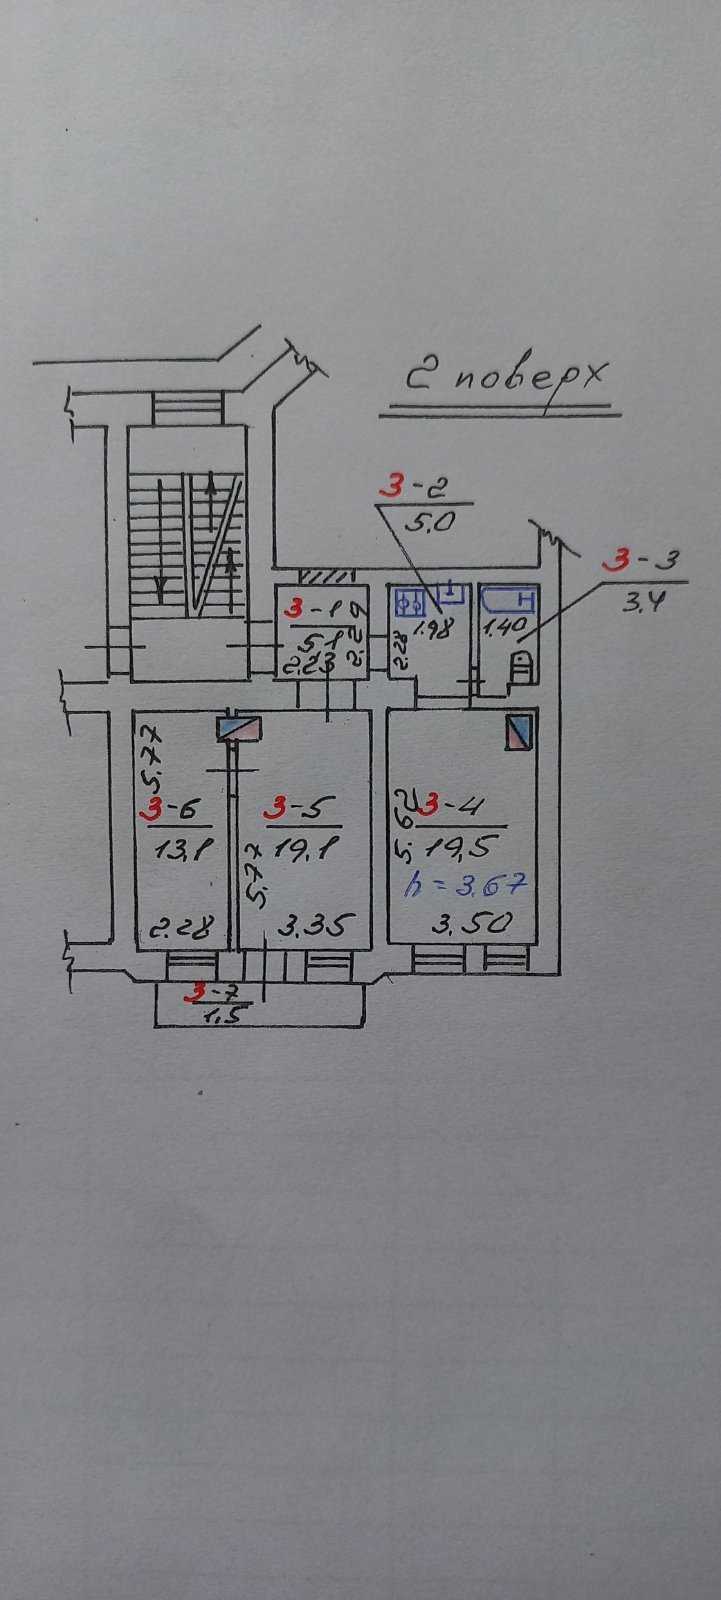 2 поверх
3-2
5.0
3-3
3.4
3-1
5.1
2.23
2.29
2.28
1.98
1.40
5.77
3-6
13,1
2.28
3-5
19,1
5.77
3.35
5.62
3-4
19,5
h = 3.67
3.50
3-7
1,5